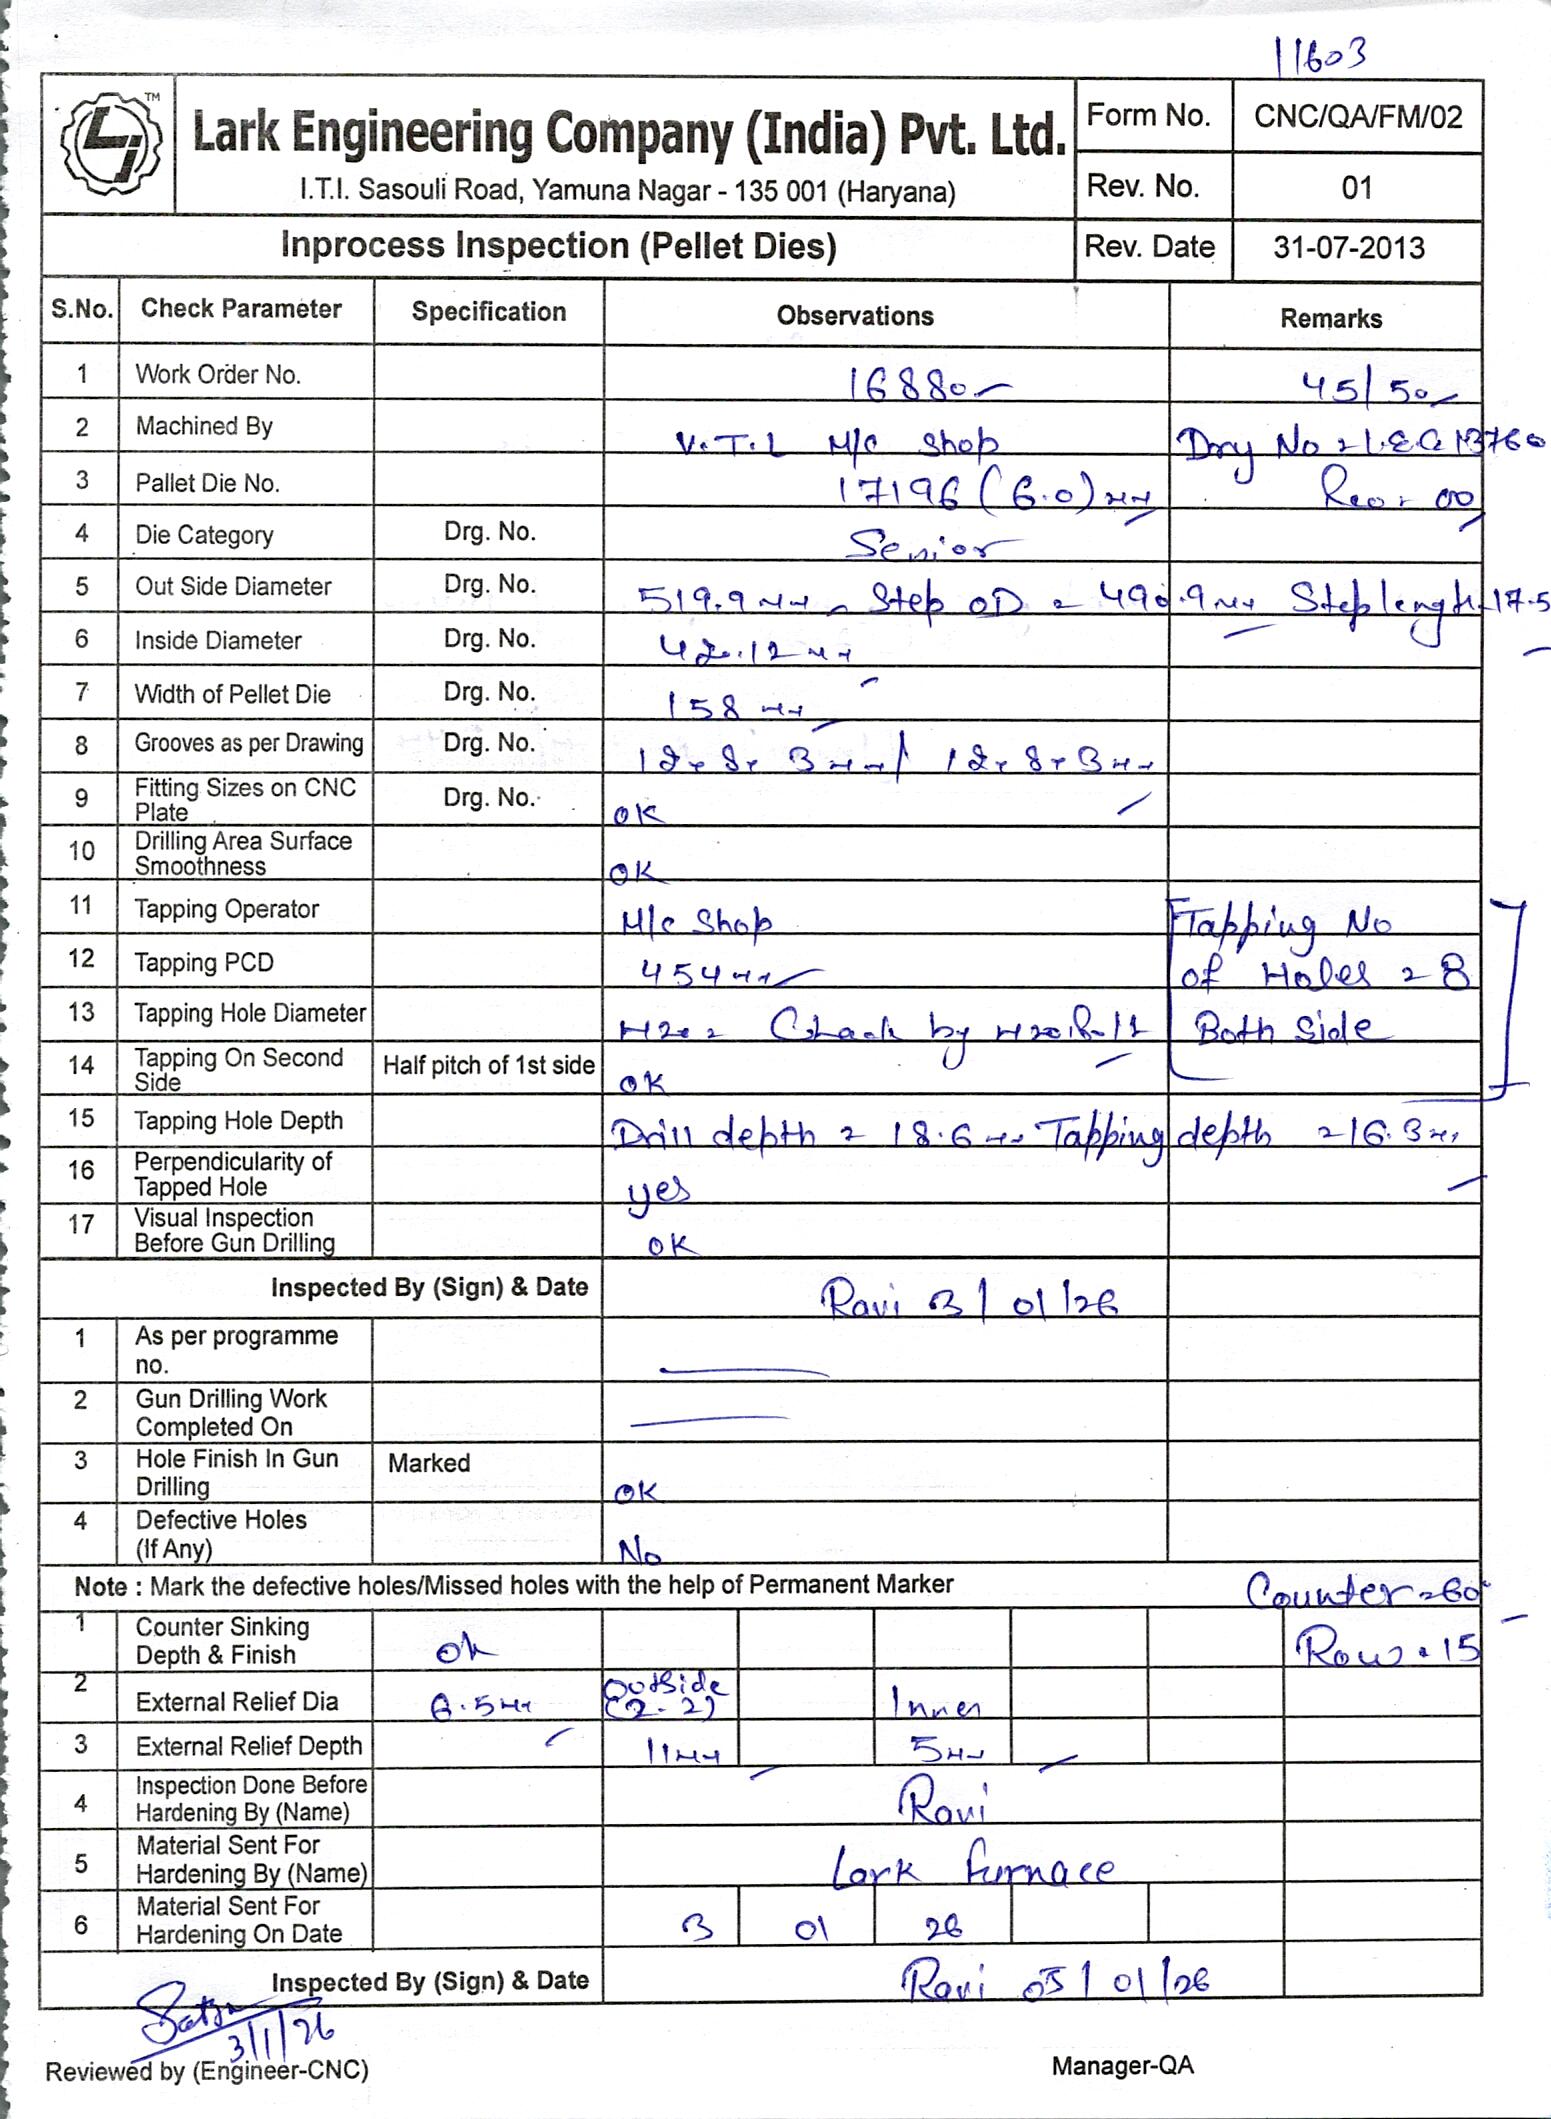 11603
TM
Lark Engineering Company (India) Pvt. Ltd.
I.T.I. Sasouli Road, Yamuna Nagar - 135 001 (Haryana)
Form No. CNC/QA/FM/02
Rev. No. 01
Inprocess Inspection (Pellet Dies) Rev. Date 31-07-2013
S.No. Check Parameter Specification Observations Remarks
1 Work Order No. 16880 45/50
2 Machined By V.T.L M/c Shop Drg No = L.E.C 13760
3 Pallet Die No. 17196 (6.0) mm Rev. 00
4 Die Category Drg. No. Senior
5 Out Side Diameter Drg. No. 519.9 mm Step OD = 490.9 mm Step length = 17.5
6 Inside Diameter Drg. No. 420.12 mm
7 Width of Pellet Die Drg. No. 158 mm
8 Grooves as per Drawing Drg. No. 12 x 8 x 3 mm / 12 x 8 x 3 mm
9 Fitting Sizes on CNC Plate Drg. No. OK
10 Drilling Area Surface Smoothness OK
11 Tapping Operator M/c Shop Tapping No
12 Tapping PCD 454 mm of Holes = 8
13 Tapping Hole Diameter M20 = Check by M20 Bolt Both Side
14 Tapping On Second Side Half pitch of 1st side OK
15 Tapping Hole Depth Drill depth = 18.6 mm Tapping depth = 16.3 mm
16 Perpendicularity of Tapped Hole yes
17 Visual Inspection Before Gun Drilling OK
Inspected By (Sign) & Date Ravi 3/01/26
1 As per programme no.
2 Gun Drilling Work Completed On
3 Hole Finish In Gun Drilling Marked OK
4 Defective Holes (If Any) No
Note : Mark the defective holes/Missed holes with the help of Permanent Marker Counter = 60°
1 Counter Sinking Depth & Finish ok Row = 15
2 External Relief Dia 6.5 mm Outside (2-2) Inner
3 External Relief Depth 11 mm 5 mm
4 Inspection Done Before Hardening By (Name) Ravi
5 Material Sent For Hardening By (Name) Lark Furnace
6 Material Sent For Hardening On Date 3 01 26
Inspected By (Sign) & Date Ravi 03/01/26
3/1/26
Reviewed by (Engineer-CNC) Manager-QA